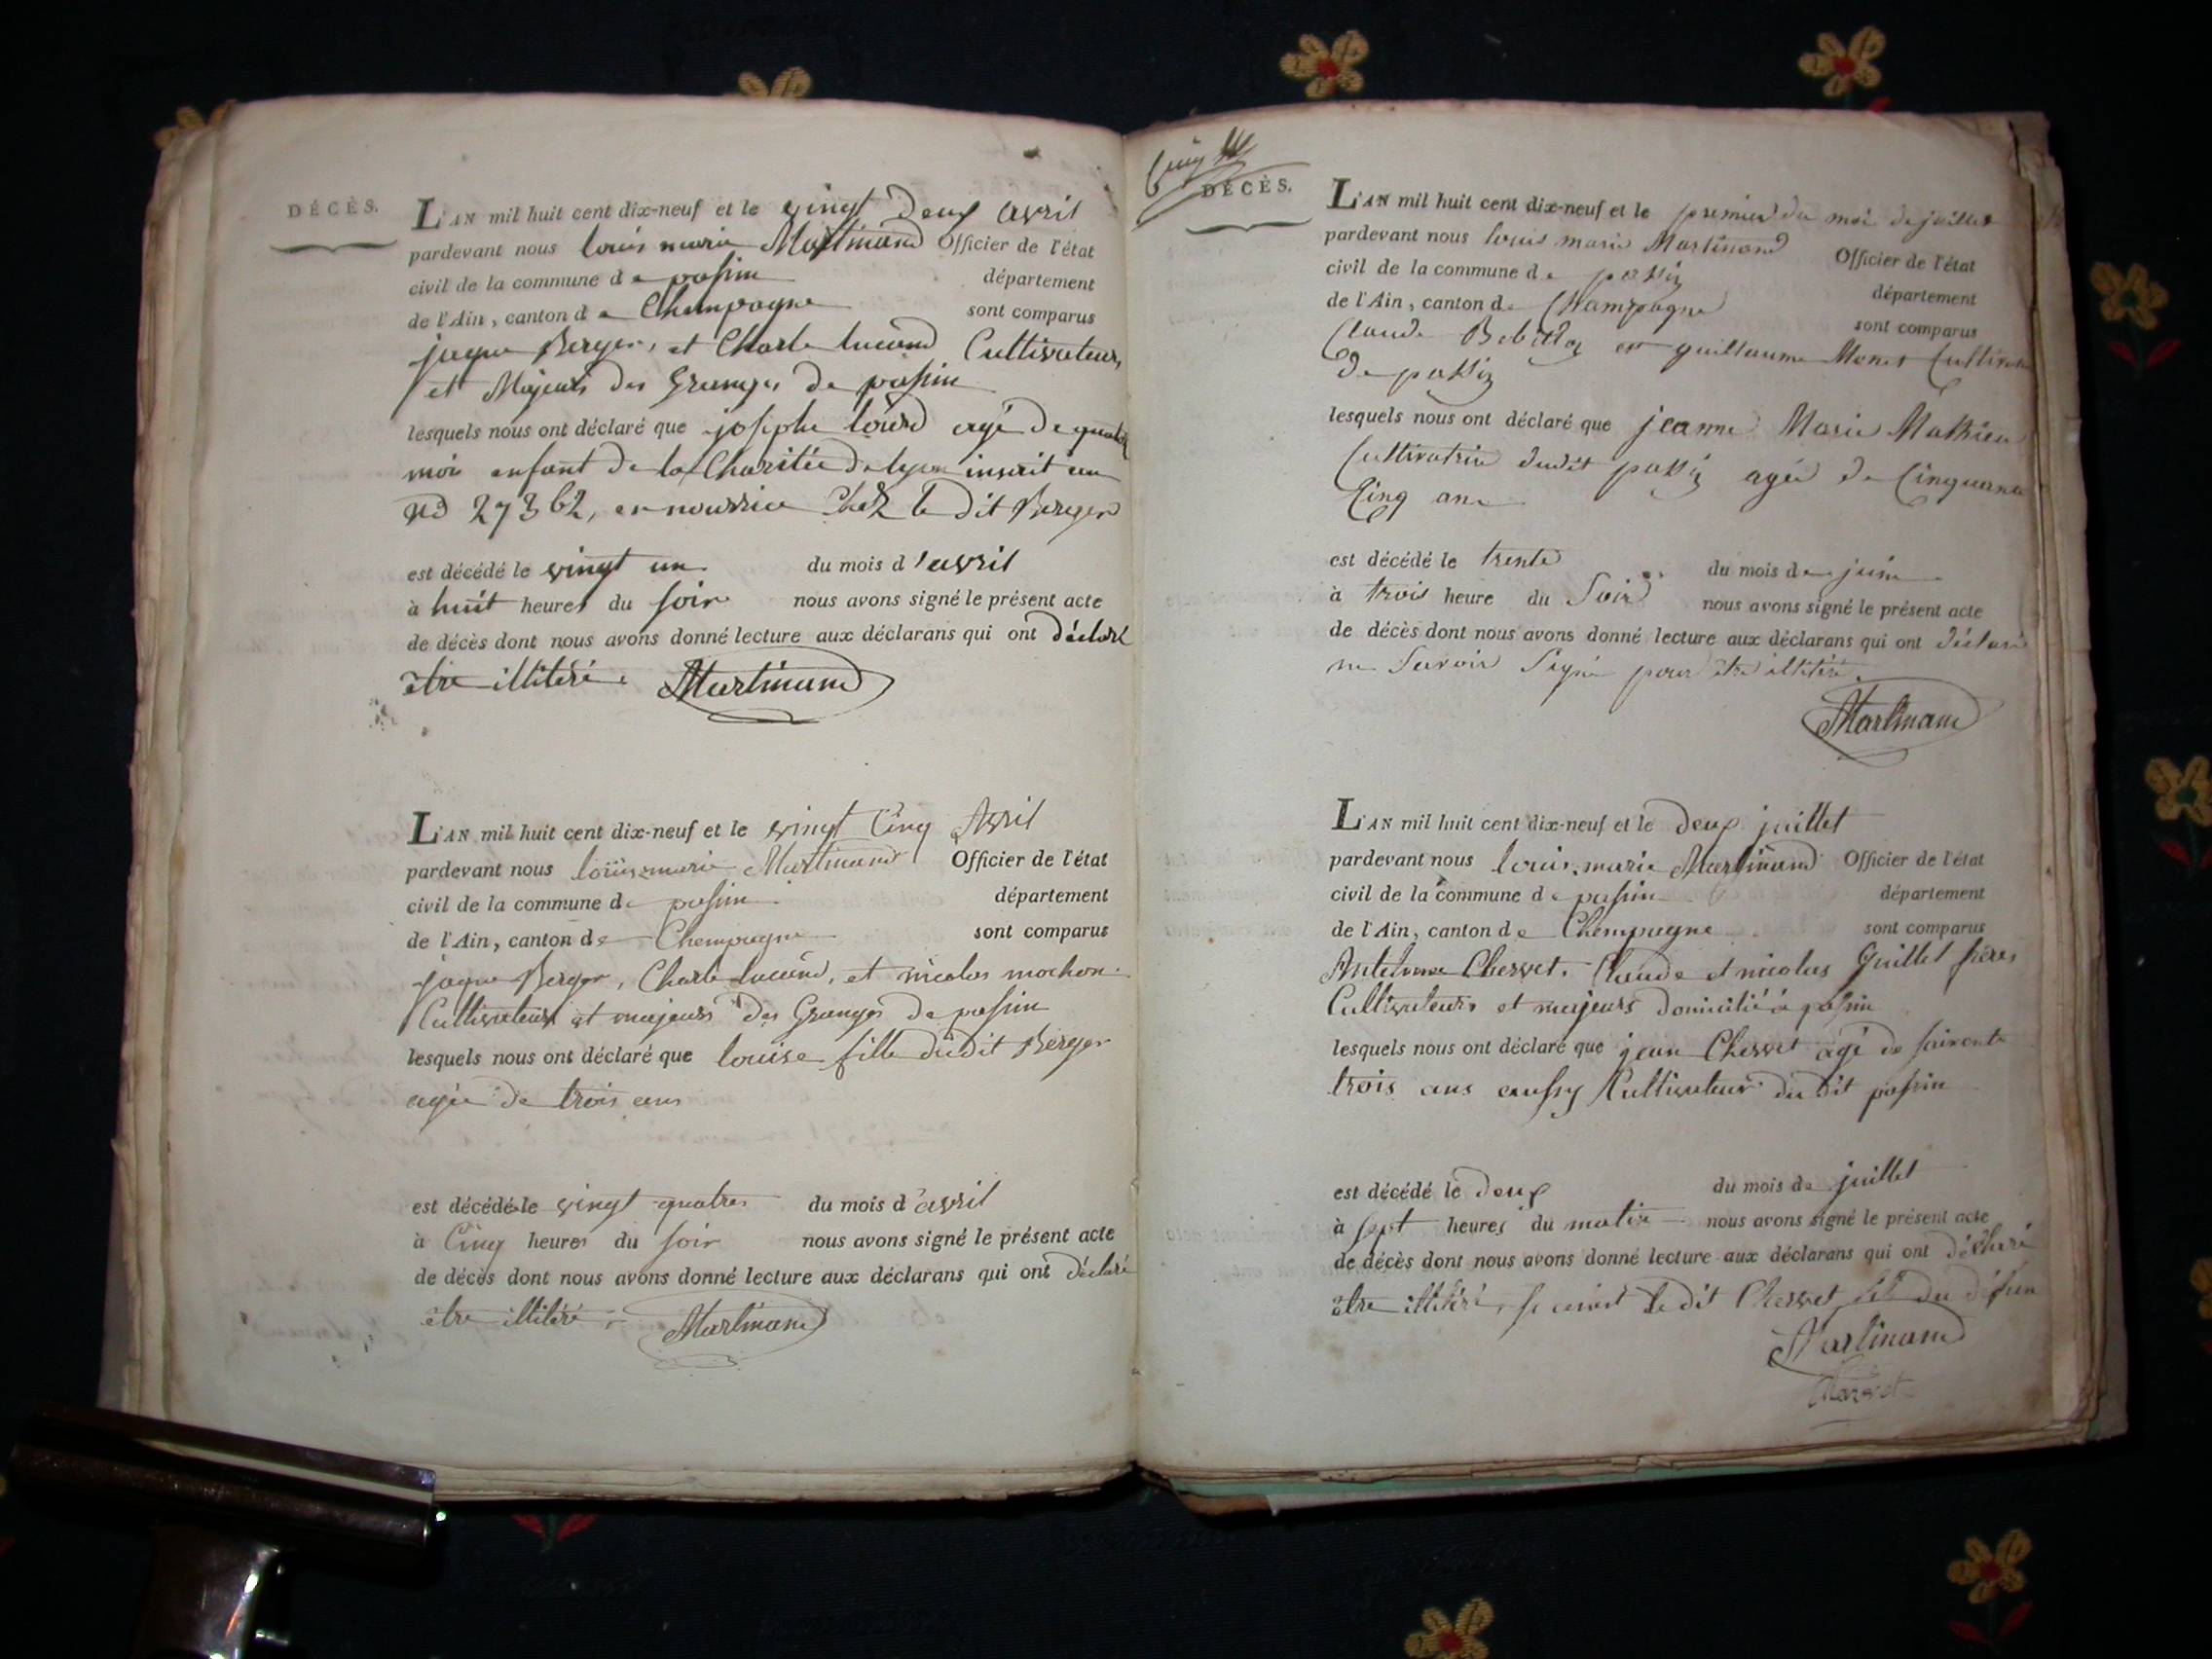 DÉCÈS.
L'AN mil huit cent dix-neuf et le vingt deux avril
pardevant nous louis marie Martinand Officier de l'état
civil de la commune de passin département
de l'Ain, canton de Champagne sont comparus
jaque Berger, et Charle lucand Cultivateurs
et Majeurs des Granges de passin
lesquels nous ont déclaré que josephe agé de
moi enfant de la Charitée de lyon inscrit
no 27362, en nourrice chez le dit Berger
est décédé le vingt un du mois d'avril
à huit heures du soir nous avons signé le présent acte
de décès dont nous avons donné lecture aux déclarans qui ont déclaré
être illitéré. Martinand
L'AN mil huit cent dix-neuf et le vingt Cinq Avril
pardevant nous louis marie Martinand Officier de l'état
civil de la commune de passin département
de l'Ain, canton de Champagne sont comparus
jaque Berger, Charle lucand, et nicolas mochon
Cultivateurs et majeurs des Granges de passin
lesquels nous ont déclaré que louise fille dudit Berger
agée de trois ans
est décédé le vingt quatre du mois d'avril
à Cinq heures du soir nous avons signé le présent acte
de décès dont nous avons donné lecture aux déclarans qui ont déclaré
être illitéré. Martinand
DÉCÈS.
L'AN mil huit cent dix-neuf et le premier du moi de juillet
pardevant nous louis marie Martinand Officier de l'état
civil de la commune de passin département
de l'Ain, canton de Champagne sont comparus
Claude et guillaume Monet
de passin
lesquels nous ont déclaré que jeanne Marie Mathieu
Cultivatrice dudit passin agée de Cinquante
Cinq ans
est décédé le trente du mois de juin
à trois heure du Soir nous avons signé le présent acte
de décès dont nous avons donné lecture aux déclarans qui ont déclaré
ne Savoir Signé pour être illitéré.
Martinand
L'AN mil huit cent dix-neuf et le deux juillet
pardevant nous louis marie Martinand Officier de l'état
civil de la commune de passin département
de l'Ain, canton de Champagne sont comparus
Antelme Chervet, Claude et nicolas Guillet frères
Cultivateurs et majeurs domicilié à passin
lesquels nous ont déclaré que jean Chervet agé de soixante
trois ans aussy Cultivateur du dit passin
est décédé le deux du mois de juillet
à sept heures du matin nous avons signé le présent acte
de décès dont nous avons donné lecture aux déclarans qui ont déclaré
être illitéré, le dit Chervet fils du défun
Martinand
Chervet